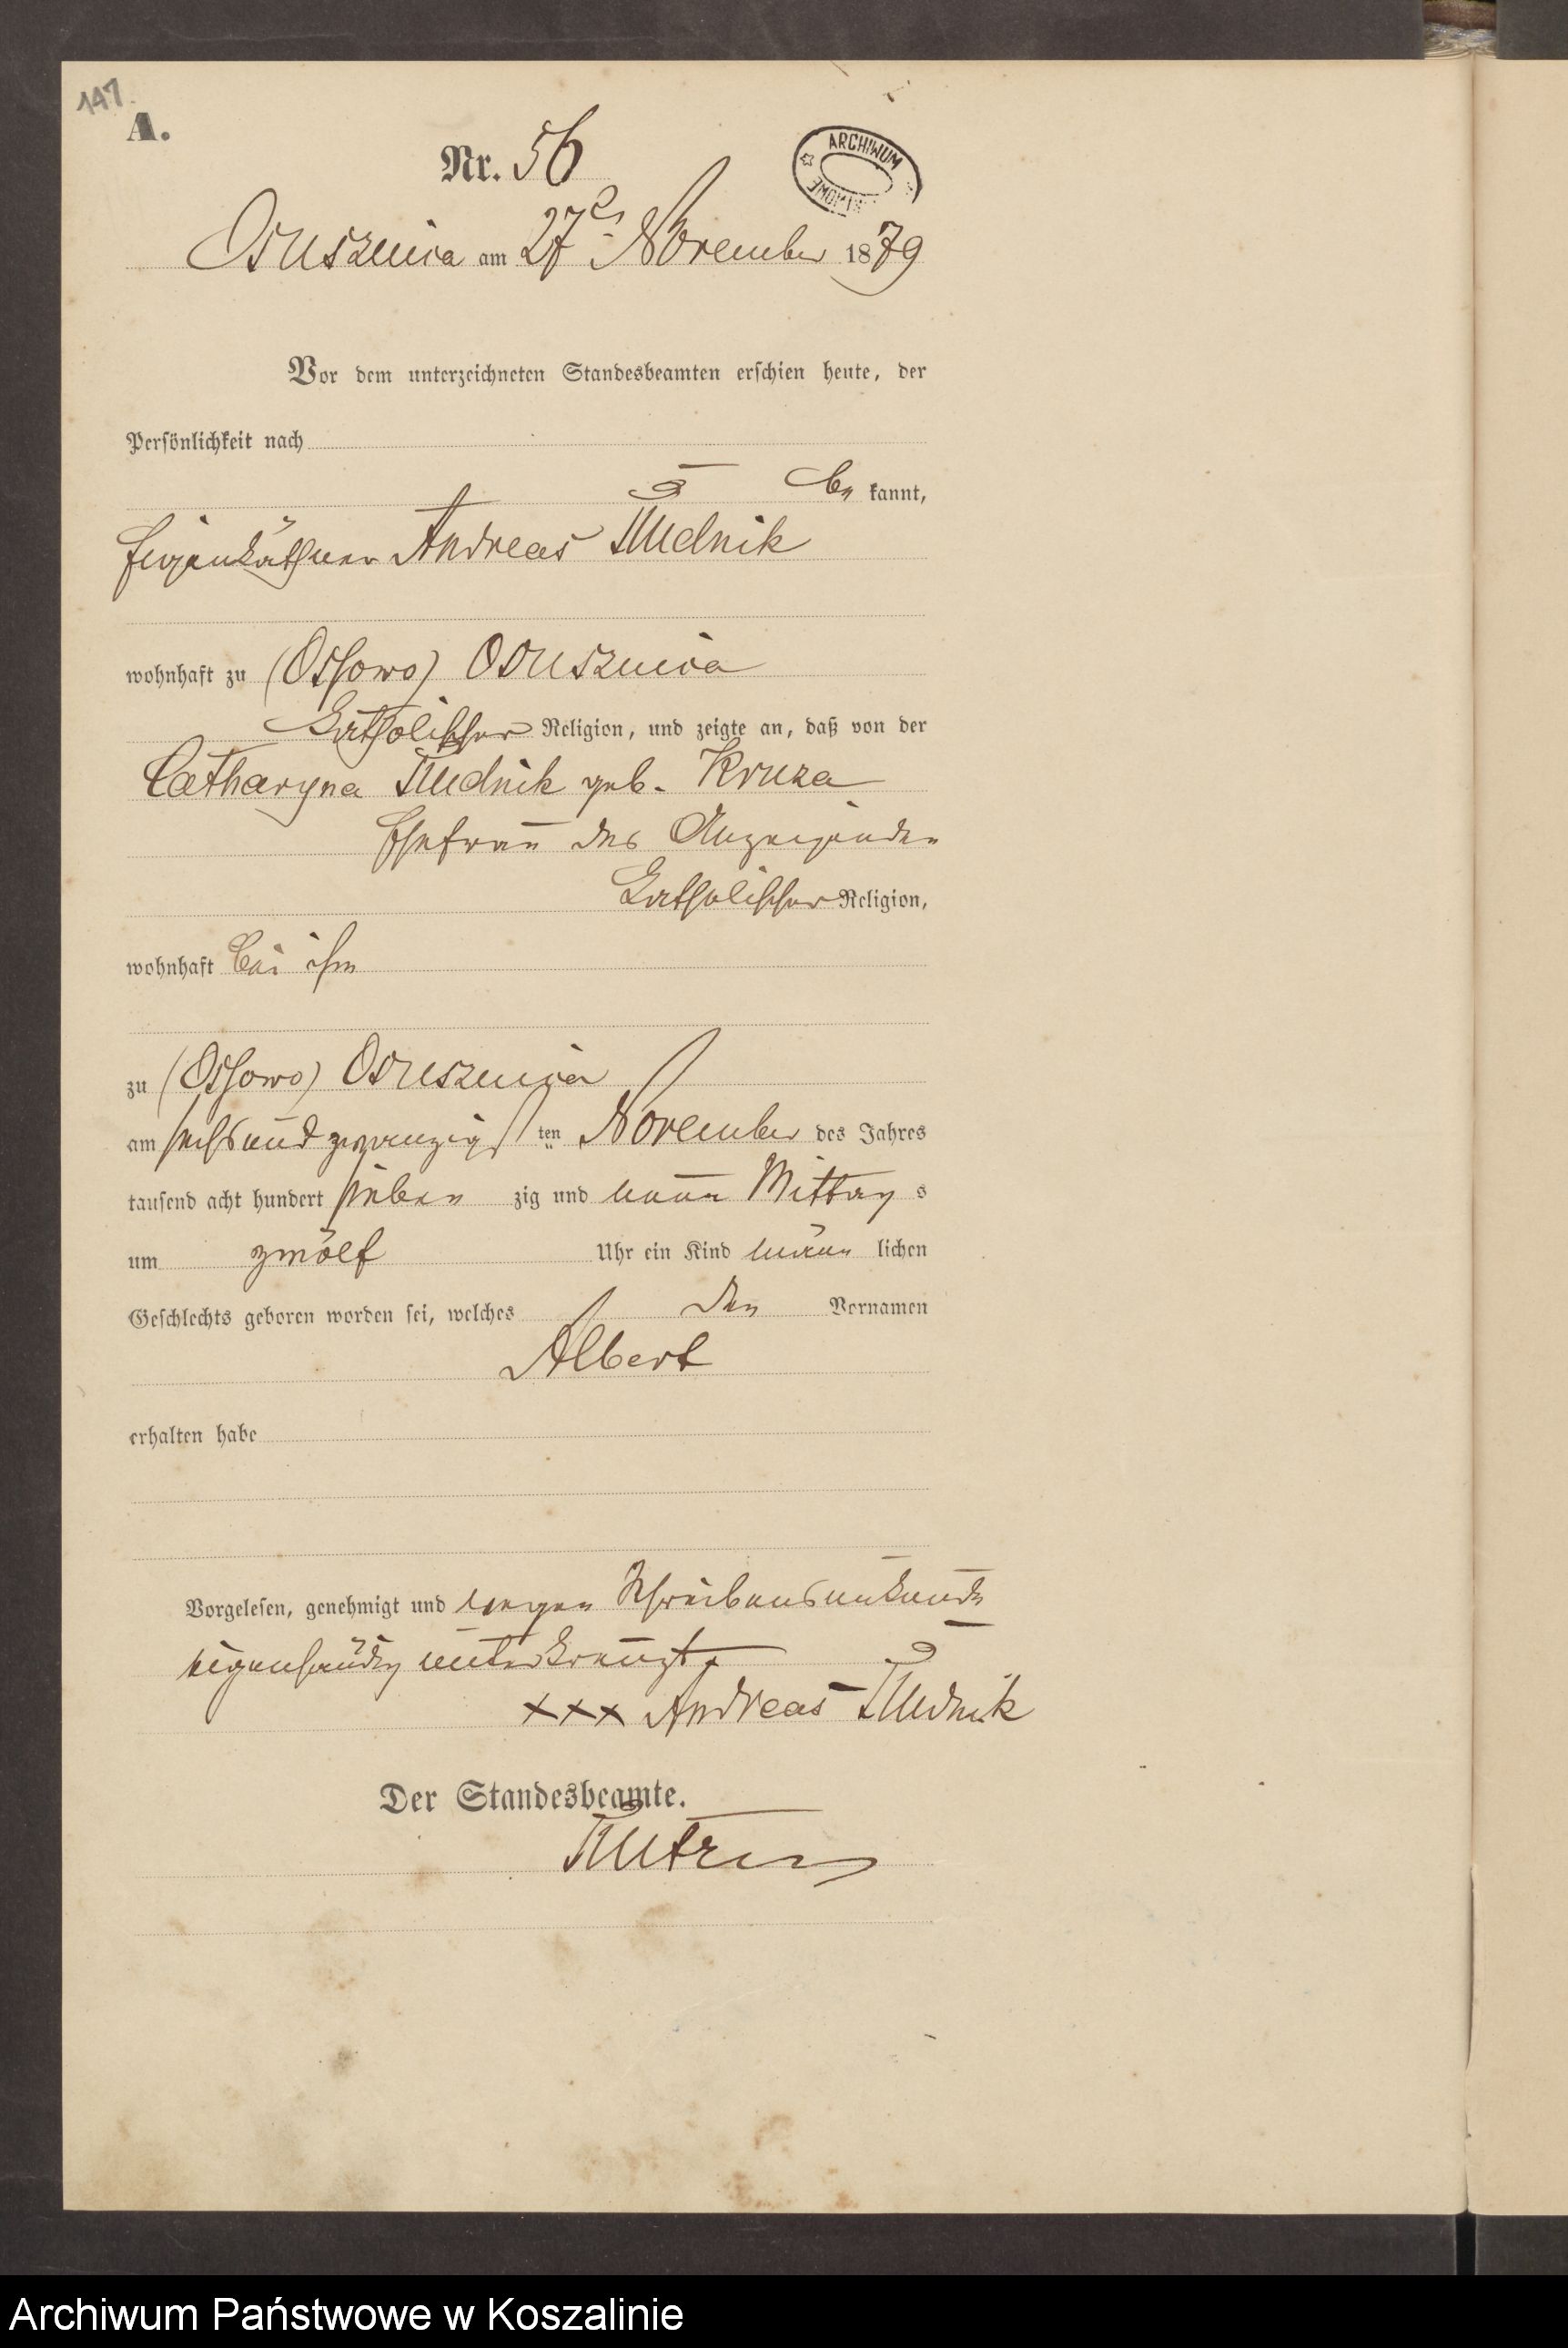 147.
A.
Nr. 56
ARCHIWUM
Osusznica am 27t November 1879
Vor dem unterzeichneten Standesbeamten erschien heute, der
Persönlichkeit nach
be kannt,
Eigenkäthner Andreas Rudnik
wohnhaft zu (Ossowo) Osusznica
katholischer Religion, und zeigte an, daß von der
Catharyna Rudnik geb. Kruza
Ehefrau des Anzeigenden
katholischer Religion,
wohnhaft bei ihm
zu (Ossowo) Osusznica
am sechsundzwanzigsten November des Jahres
tausend acht hundert sieben zig und neun Mittag s
um zwölf Uhr ein Kind männ lichen
Geschlechts geboren worden sei, welches den Vornamen
Albert
erhalten habe
Vorgelesen, genehmigt und wegen Schreibensunkunde
eigenhändig unterkreuzt.
xxx Andreas Rudnik
Der Standesbeamte.
Archiwum Państwowe w Koszalinie